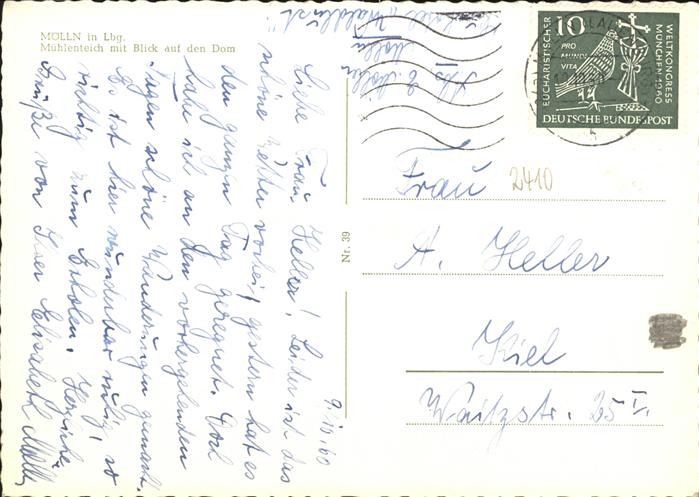 MÖLLN in Lbg.
Mühlenteich mit Blick auf den Dom
9.10.60
Liebe Frau Heller! Leider ist das
schöne Wetter vorbei, gestern hat es
den ganzen Tag geregnet. Doch
habe ich an den vorhergehenden
Tagen schöne Wanderungen gemacht.
Es ist hier wunderbar ruhig, so
richtig zum Erholen. Herzliche
Grüße von Ihrer Elisabeth Möller
Abs. E. Möller
Mölln
Hotel "Waldlust"
Nr. 39
EUCHARISTISCHER
WELTKONGRESS
MÜNCHEN 1960
10
PRO
MUNDI
VITA
DEUTSCHE BUNDESPOST
Frau
2410
A. Heller
Kiel
Waitzstr. 25 I.